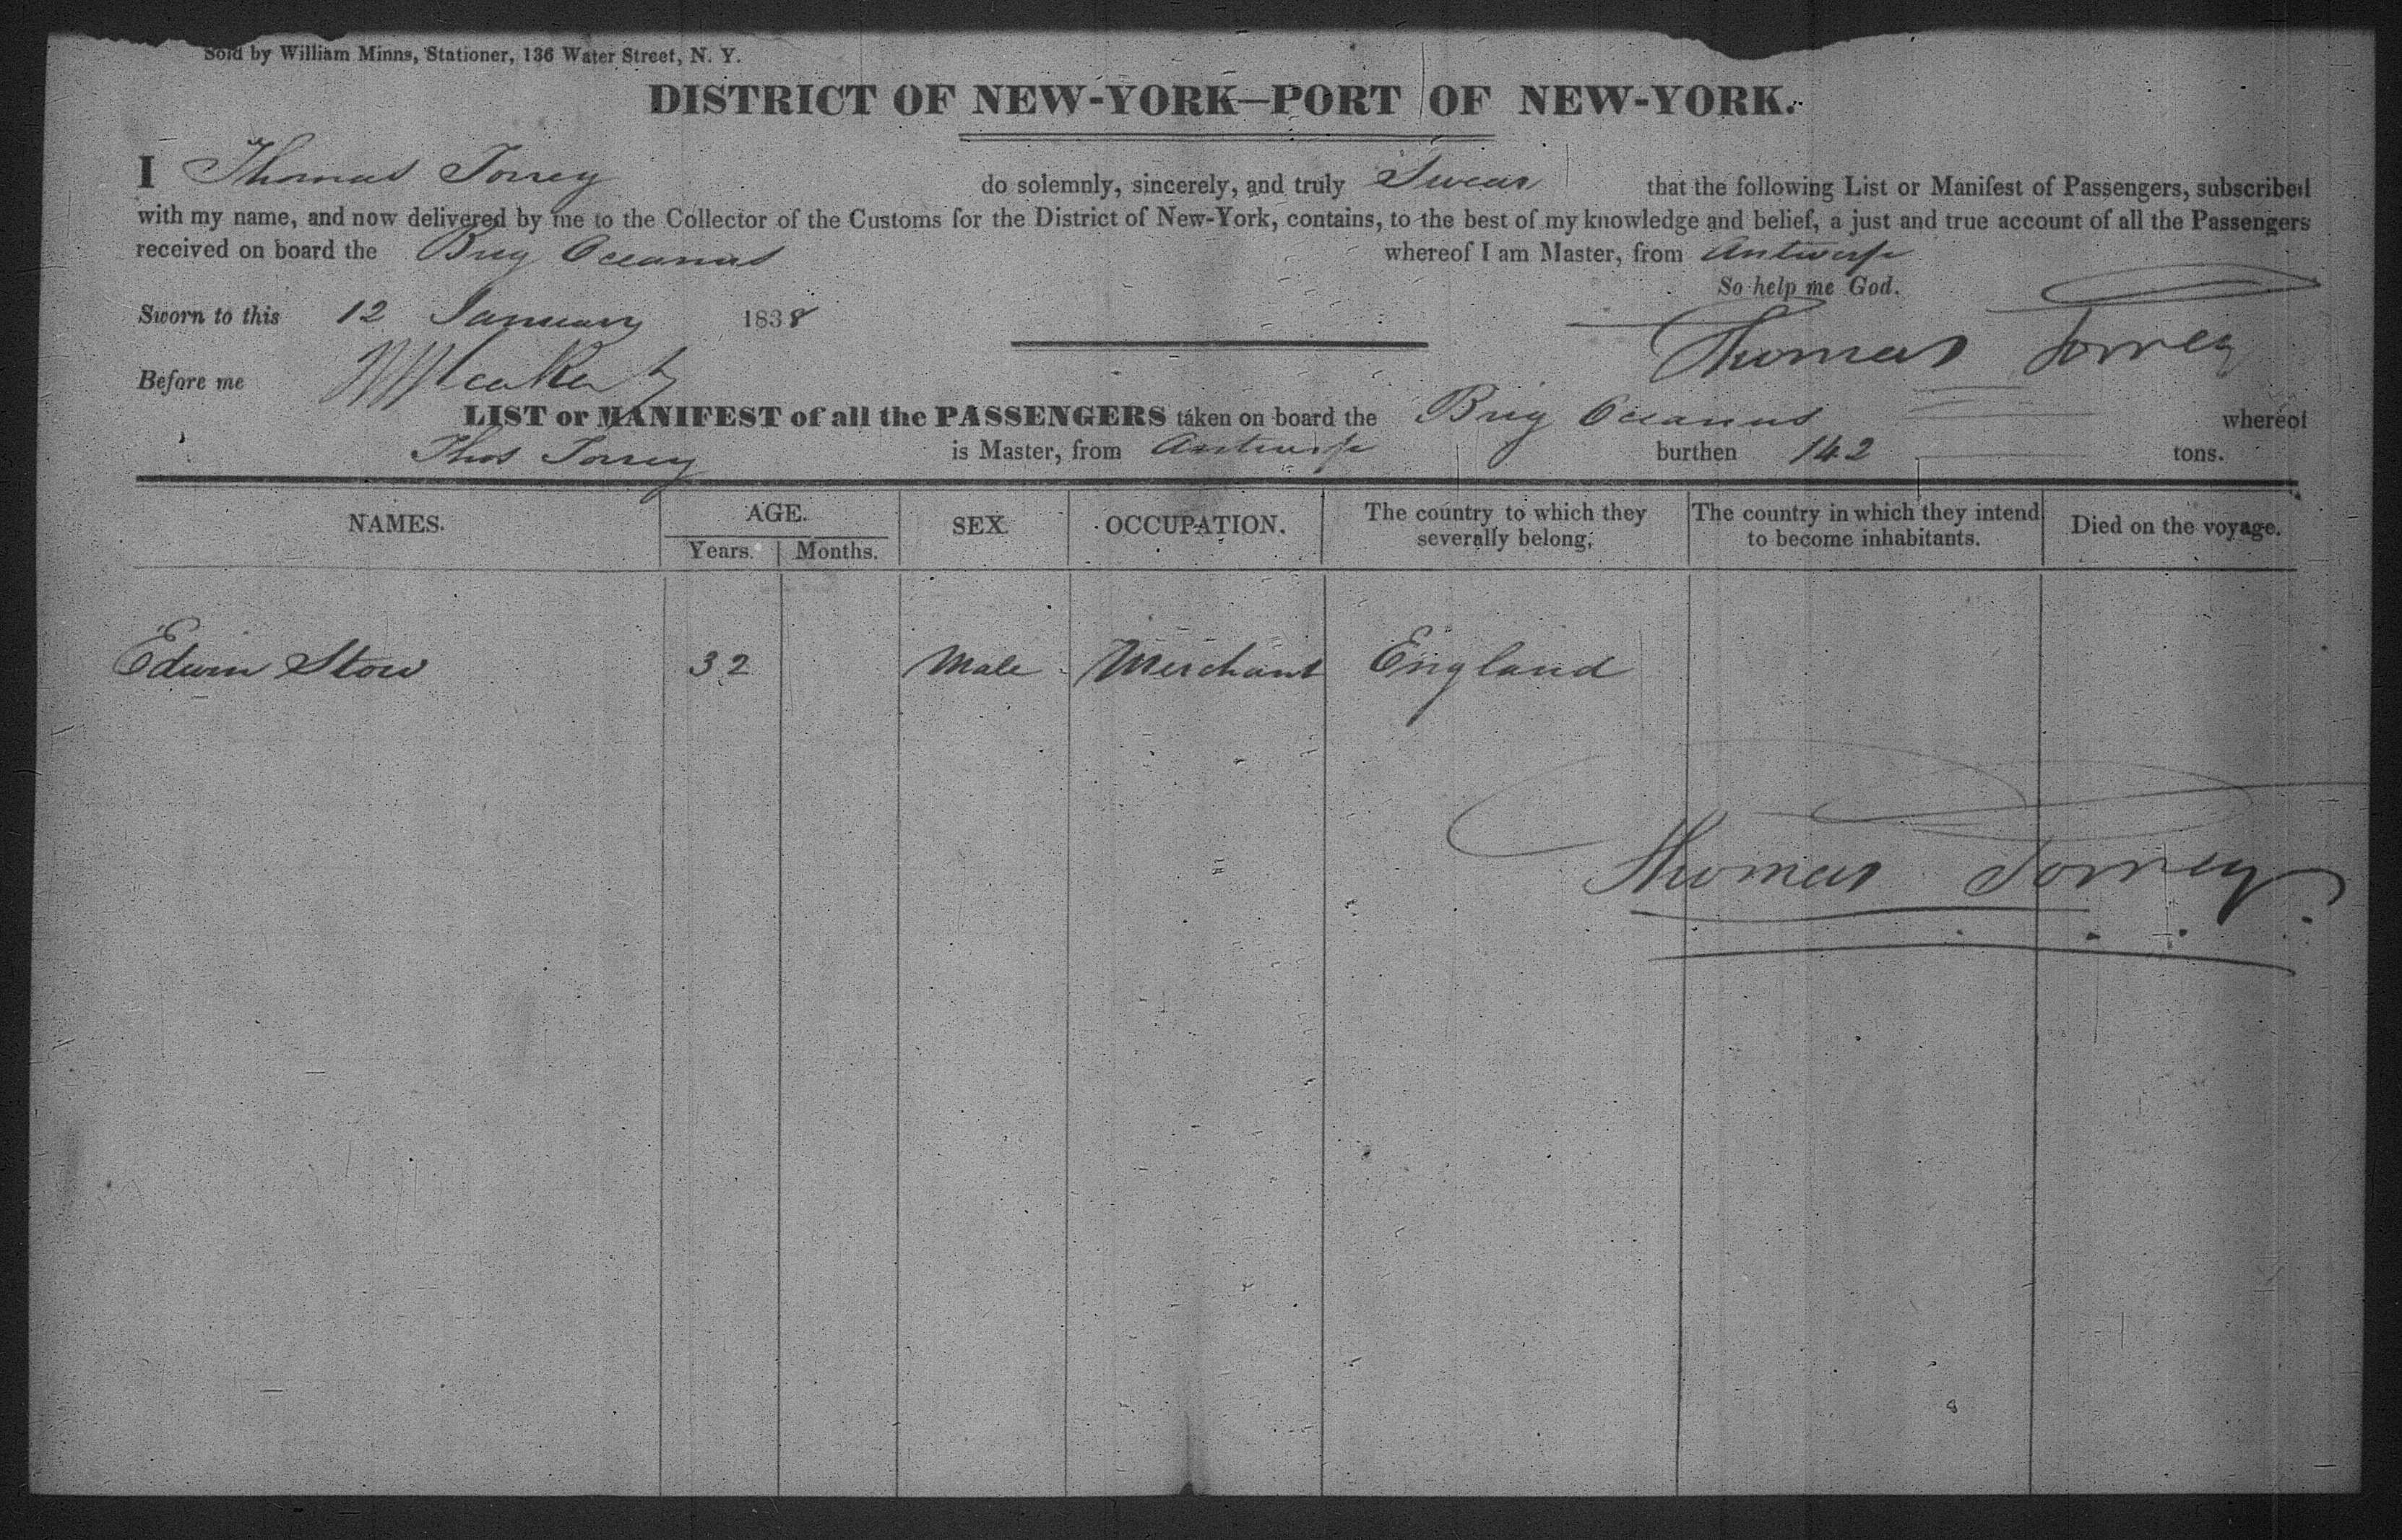 Sold by William Minns, Stationer, 136 Water Street, N. Y.
DISTRICT OF NEW-YORK—PORT OF NEW-YORK.
I Thomas Torrey do solemnly, sincerely, and truly Swear that the following List or Manifest of Passengers, subscribed
with my name, and now delivered by me to the Collector of the Customs for the District of New-York, contains, to the best of my knowledge and belief, a just and true account of all the Passengers
received on board the Brig Oceanus whereof I am Master, from Antwerp
So help me God.
Sworn to this 12 January 1838
Thomas Torrey
Before me
LIST or MANIFEST of all the PASSENGERS taken on board the Brig Oceanus whereof
Thos Torrey is Master, from Antwerp burthen 142 tons.
NAMES. AGE. Years. Months. SEX. OCCUPATION. The country to which they severally belong, The country in which they intend to become inhabitants. Died on the voyage.
Edwin Stow 32 Male Merchant England
Thomas Torrey